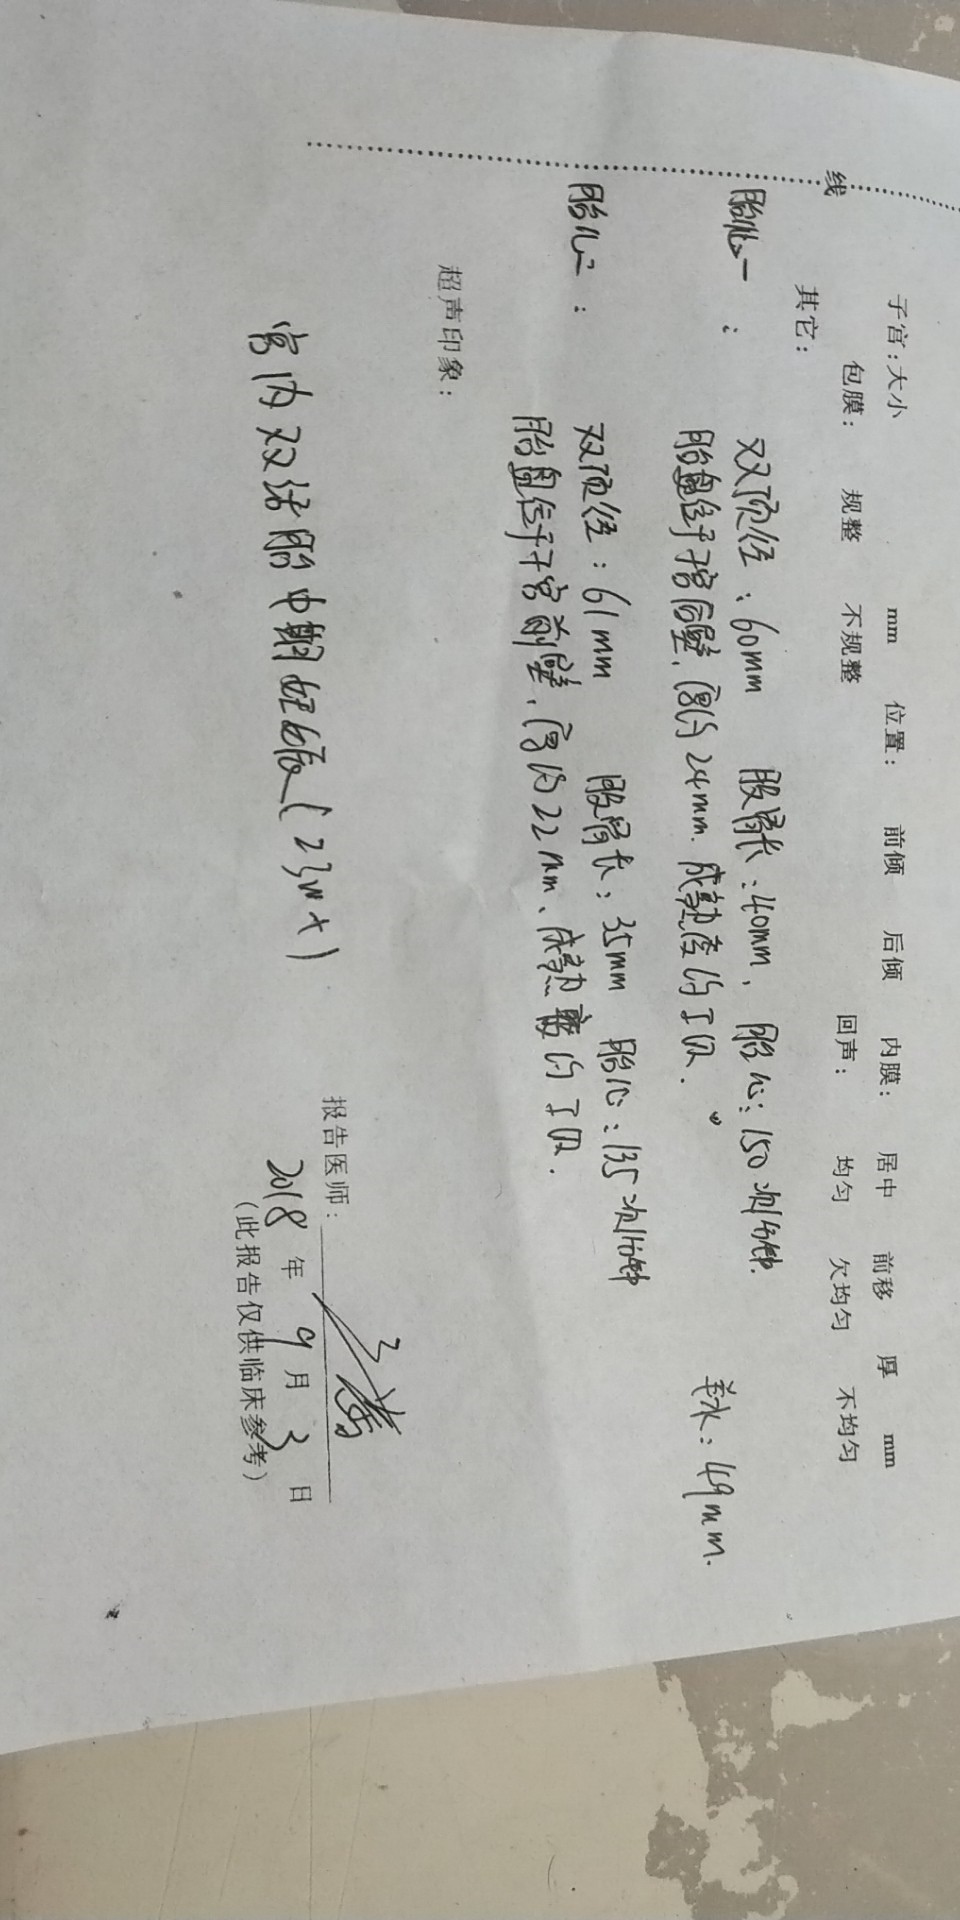 线
子宫:大小 mm 位置: 前倾 后倾 内膜: 居中 前移 厚 mm
包膜: 规整 不规整 回声: 均匀 欠均匀 不均匀
其它:
胎儿一: 双顶径:60mm 股骨长:40mm、胎心:150次/分钟.
胎盘位于子宫后壁、厚约24mm.成熟度约I级. 羊水:49mm.
胎儿二: 双顶径:61mm 股骨长:35mm 胎心:135次/分钟
胎盘位于子宫前壁、厚约22mm、成熟度约I级.
超声印象:
宫内双活胎中期妊娠(23w+)
报告医师:
2018年9月3日
(此报告仅供临床参考)